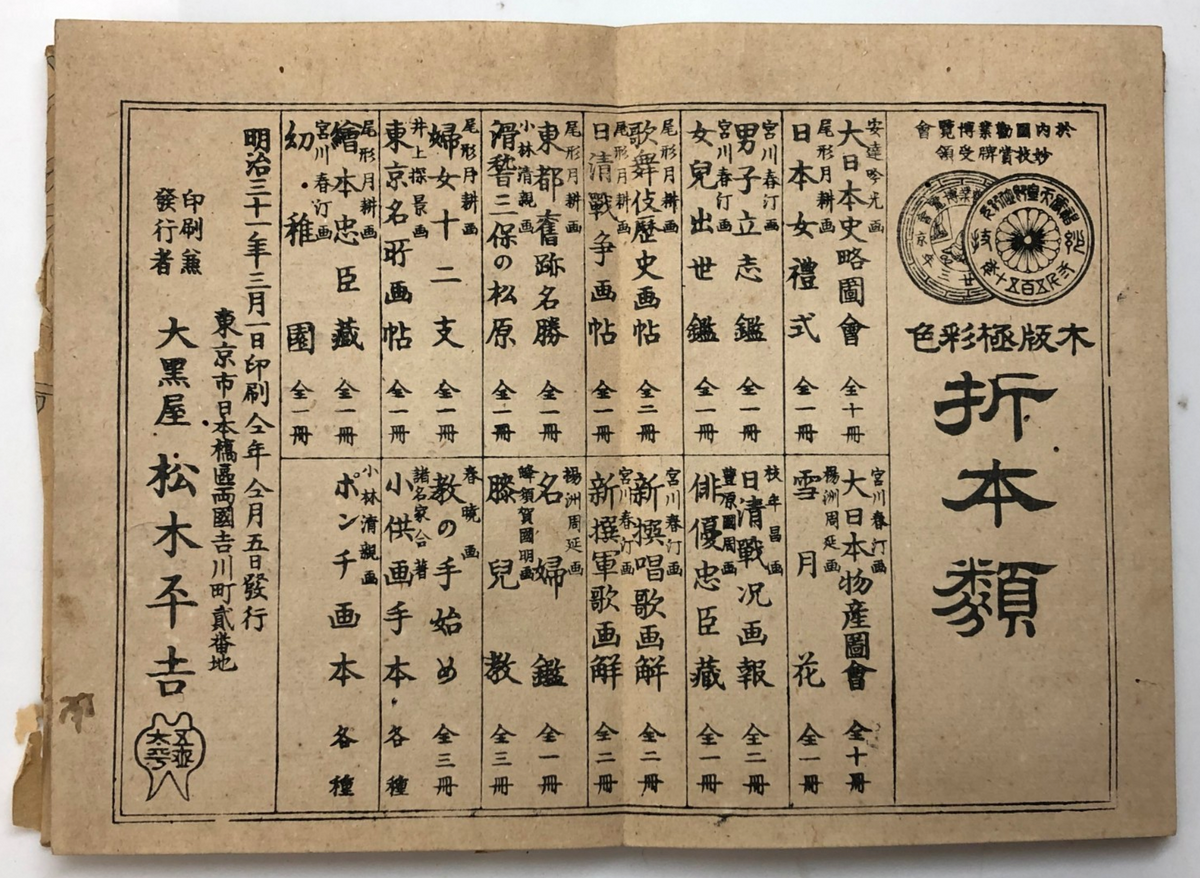 於内国勸業博覽會
妙技賞牌受領
木版極彩色
折本類
安達吟光画
大日本史略圖會 全十冊
尾形月耕画
日本女禮式 全一冊
宮川春汀画
男子立志鑑 全一冊
宮川春汀画
女兒出世鑑 全一冊
尾形月耕画
歌舞伎歷史画帖 全二冊
尾形月耕画
日清戰争画帖 全一冊
尾形月耕画
東都舊跡名勝 全一冊
小林清親画
滑稽三保の松原 全一冊
尾形月耕画
婦女十二支 全一冊
井上探景画
東京名所画帖 全一冊
尾形月耕画
繪本忠臣藏 全一冊
宮川春汀画
幼稚園 全一冊
宮川春汀画
大日本物産圖會 全十冊
楊洲周延画
雪月花 全一冊
枝年昌画
日清戰况画報 全二冊
豐原國周画
俳優忠臣藏 全一冊
宮川春汀画
新撰唱歌画解 全二冊
宮川春汀画
新撰軍歌画解 全二冊
楊洲周延画
名婦鑑 全一冊
蜂須賀國明画
膝兒教 全三冊
春暁画
教の手始め 全三冊
諸名家合著
小供画手本 各種
小林清親画
ポンチ画本 各種
明治三十一年三月一日印刷仝年仝月五日發行
東京市日本橋區両國吉川町貳番地
印刷兼
發行者
大黑屋 松木平吉